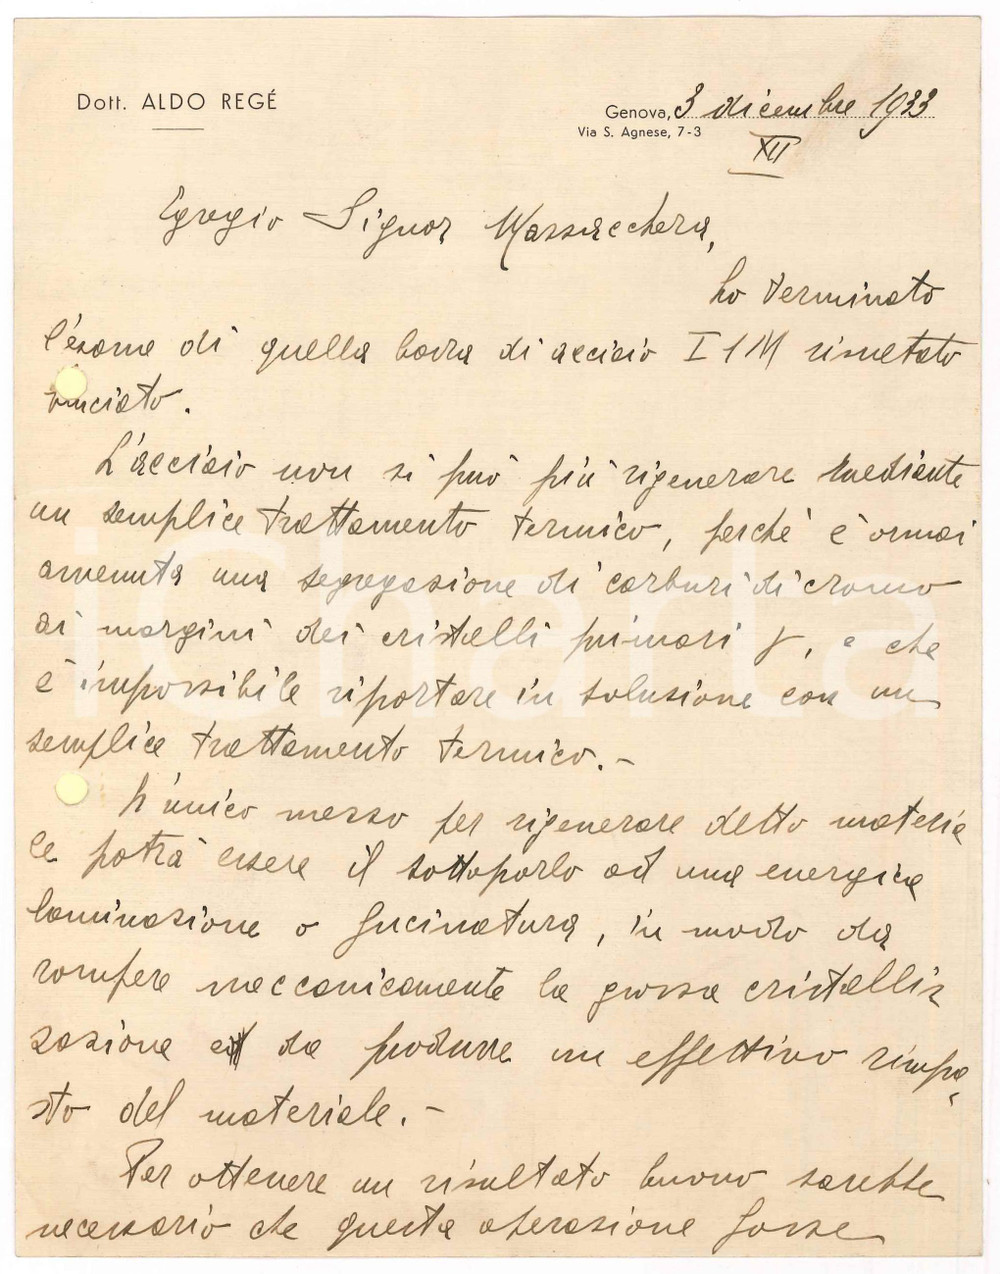 Dott. ALDO REGÉ
Genova, 3 dicembre 1933
Via S. Agnese, 7-3
XII
Egregio Signor Massacchera,
ho terminato
l'esame di quella barra di acciaio I 1 M risultato
bruciato.
L'acciaio non si può più rigenerare mediante
un semplice trattamento termico, perchè è ormai
avvenuta una segregazione di carburi di cromo
ai margini dei cristalli primari γ, e che
è impossibile riportare in soluzione con un
semplice trattamento termico. -
L'unico mezzo per rigenerare detto materia
le potrà essere il sottoporlo ad una energica
laminazione o fucinatura, in modo da
rompere meccanicamente la grossa cristalliz
zazione da produrre un effettivo rimpa-
sto del materiale. -
Per ottenere un risultato buono sarebbe
necessario che questa operazione fosse
iCharta